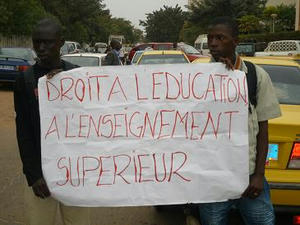 DROIT A L'EDUCATION
A L'ENSEIGNEMENT
SUPERIEUR